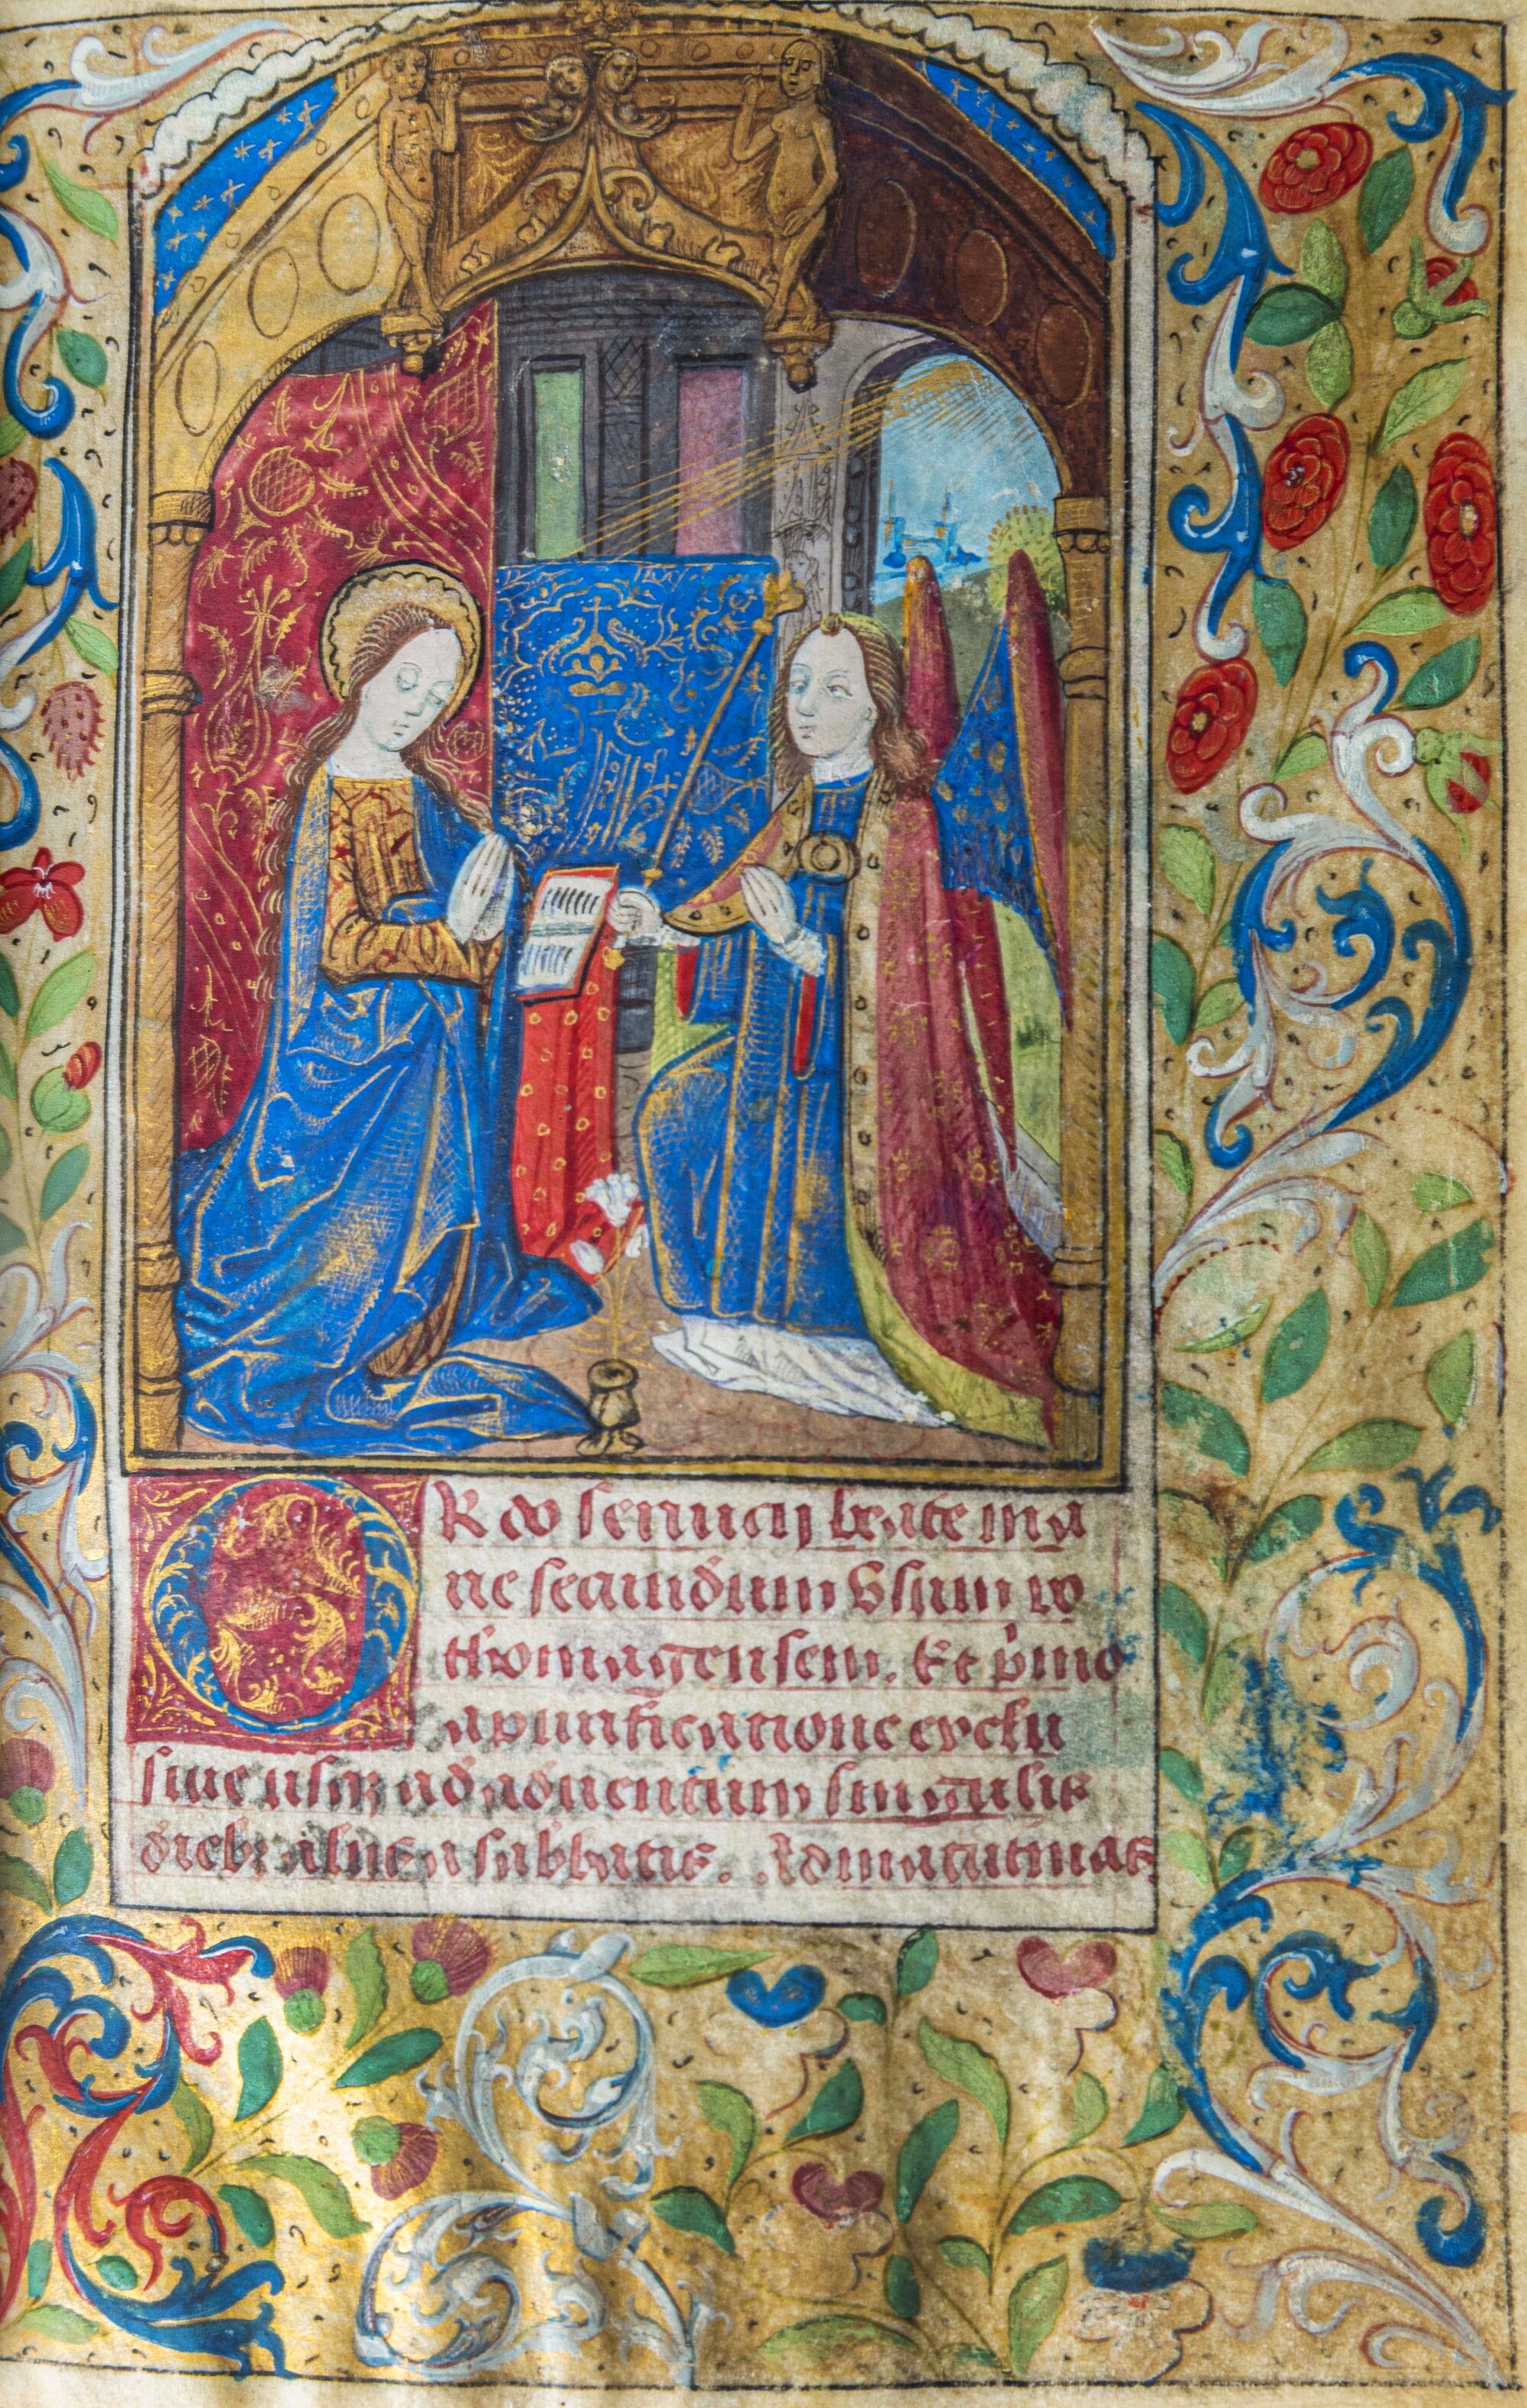 ORdo seruicij beate ma
rie secundum Vsum ro
thomagensem. Et p̄mo
a purificatione exclu
siue usqȝ ad aduentum singulis
diebȝ absque sabbatis. Ad matutinas